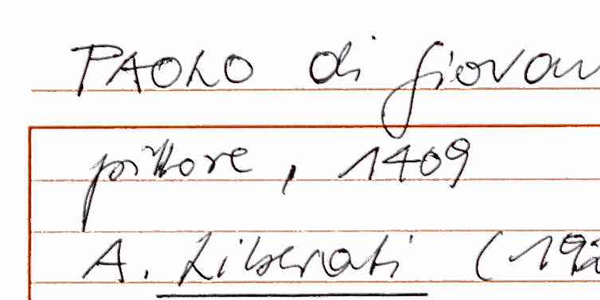 PAOLO di Giovan
pittore, 1409
A. Liberati (192